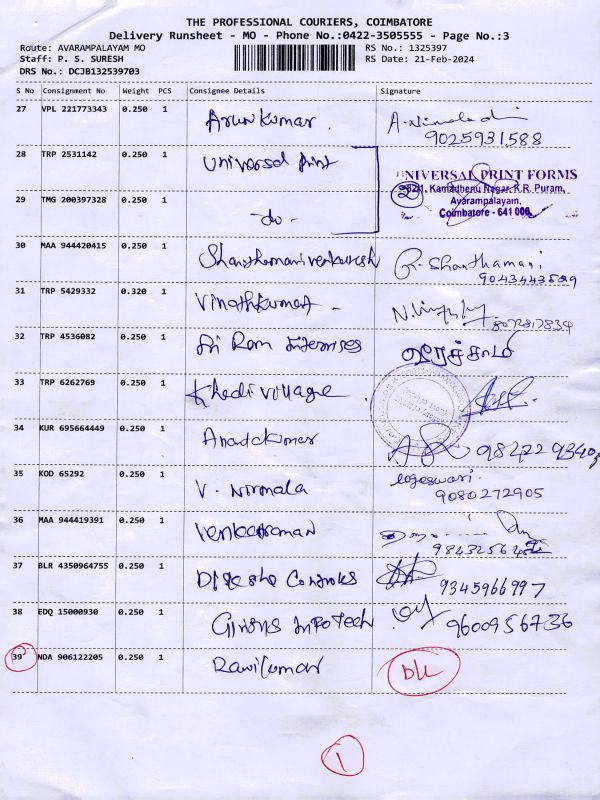 THE PROFESSIONAL COURIERS, COIMBATORE
Delivery Runsheet - MO - Phone No.:0422-3505555 - Page No.:3
Route: AVARAMPALAYAM MO RS No.: 1325397
Staff: P. S. SURESH RS Date: 21-Feb-2024
DRS No.: DCJB132539703
S No Consignment No Weight PCS Consignee Details Signature
27 VPL 221773343 0.250 1 Arun Kumar. A. Nirmaladi
9025931588
28 TRP 2531142 0.250 1 Universal print
UNIVERSAL PRINT FORMS
Kamadhenu Nagar, R.R. Puram,
Avarampalayam,
Coimbatore - 641 006.
2
29 TMG 200397328 0.250 1 -do-
30 MAA 944420415 0.250 1 Shanthamanivenkatesh R. Shanthamani
31 TRP 5429332 0.320 1 Vinothkumar -
8072817834
32 TRP 4536082 0.250 1 Sri Ram Enterprises
33 TRP 6262769 0.250 1 Khadi village
34 KUR 695664449 0.250 1 Anandkumar
35 KOD 65292 0.250 1 V. Nirmala logeswari
9080272905
36 MAA 944419391 0.250 1 Venkatraman
37 BLR 4350964755 0.250 1 Digesha Controls 9345966997
38 EDQ 15000930 0.250 1 Girins InfoTech 9600956736
39 NDA 906122205 0.250 1 Ravikumar DK
1